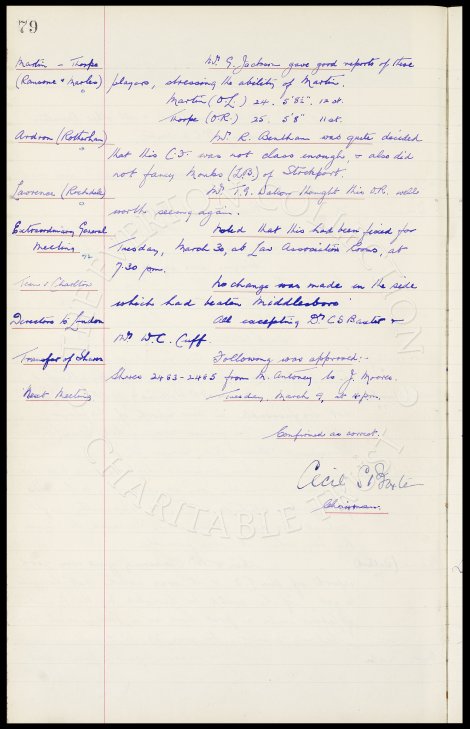 79
Martin - Thorpe Mr. G. Jackson gave good reports of these
(Ransome & Marles) players, stressing the ability of Martin.
" Martin (O.L.) 24. 5'8½" 12 st.
Thorpe (O.R.) 25. 5'8" 11 st.
Ardron (Rotherham) Mr. R. Bentham was quite decided
" that this C.F. was not class enough, & also did
not fancy Monks (L.B.) of Stockport.
Lawrence (Rochdale) Mr. T.G. thought this O.R. well
" worth seeing again.
Extraordinary General Noted that this had been fixed for
Meeting Tuesday, March 30, at Law Association Rooms, at
7.30 pm.
Team v Charlton No change was made in the side
which had beaten Middlesboro'
Directors to London All excepting Dr. C S Baxter &
Mr. W.C. Cuff.
Transfer of Shares Following was approved:-
Shares 2483-2485 from M. to J. Moores.
Next Meeting Tuesday, March 9, at 4 pm.
Confirmed as correct.
Cecil S. Baxter
Chairman.
THE EVERTON COLLECTION
CHARITABLE TRUST